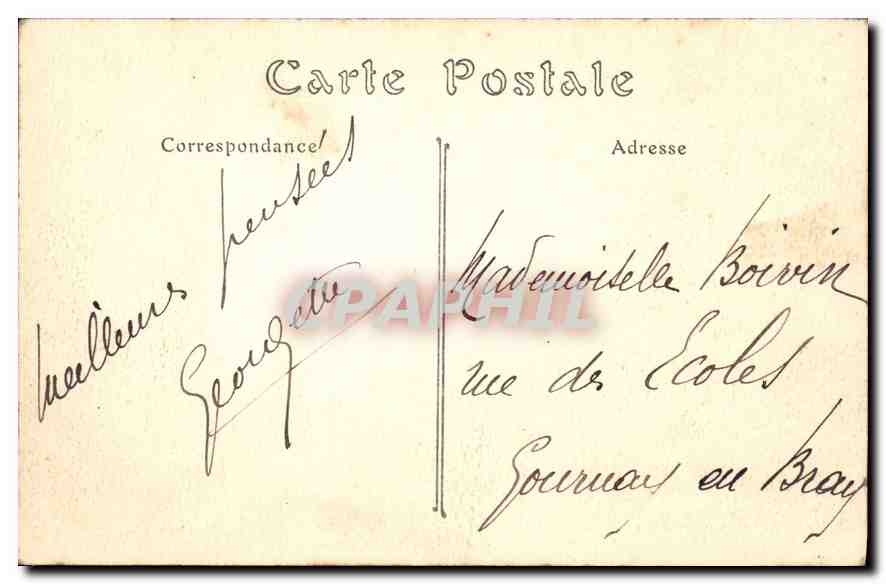 Carte Postale
Correspondance
Adresse
meilleures pensées
Georgette
Mademoiselle Boivin
rue des Ecoles
Gournay en Bray
CPAPHIL